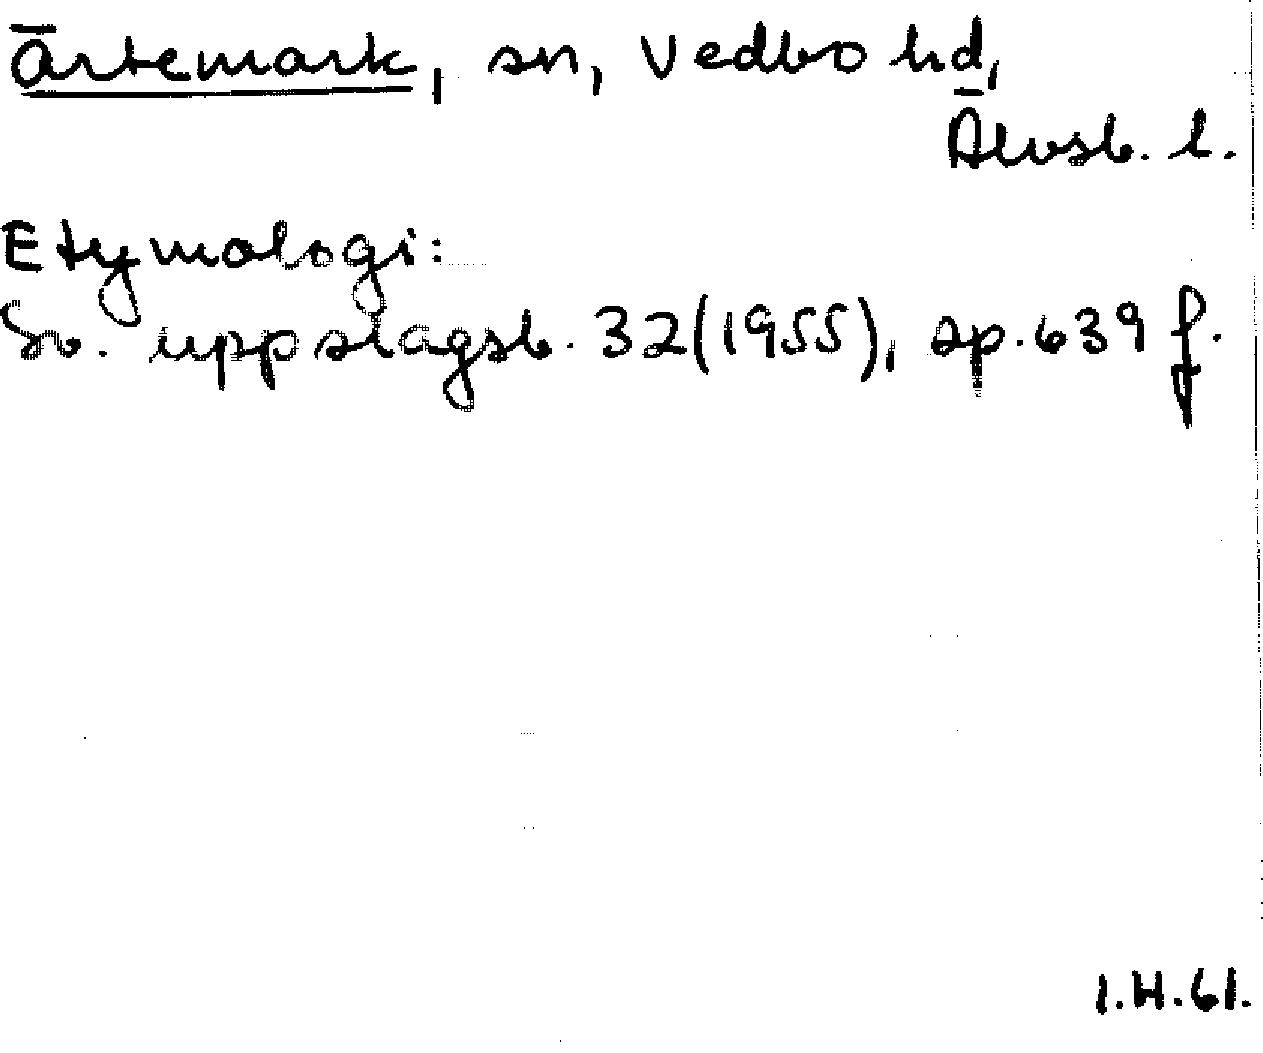 Ärtemark, sn, Vedbo hd,
Älvsb. l.
Etymologi:
Sv. uppslagsb. 32(1955), sp. 639 f.
I.H.61.